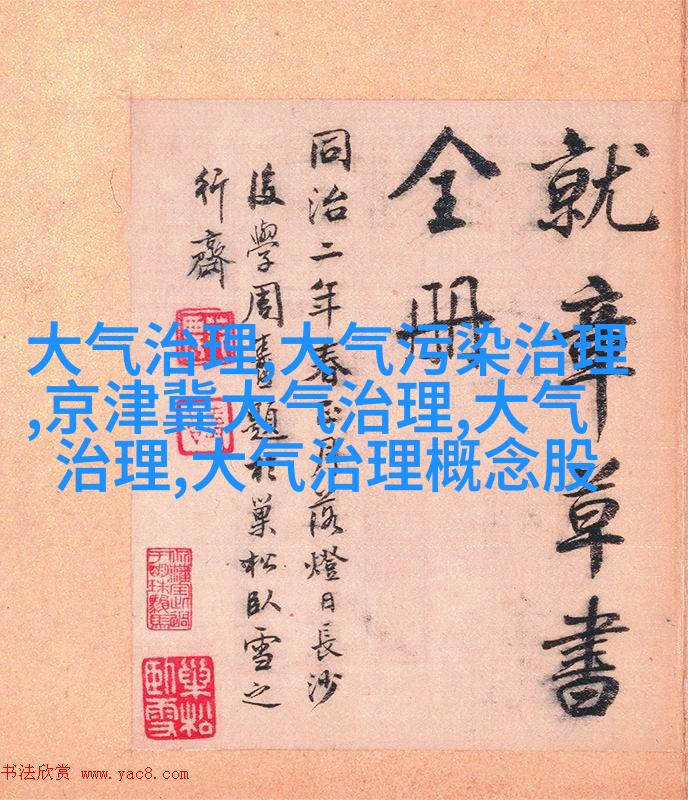 就章草書
全册
同治二年春正月落燈日長沙
後學周題於巢松臥雪之
行齋
大气治理,大气污染治理
,京津冀大气治理,大气
治理,大气治理概念股
巢松
臥雪
书法欣赏 www.yac8.com